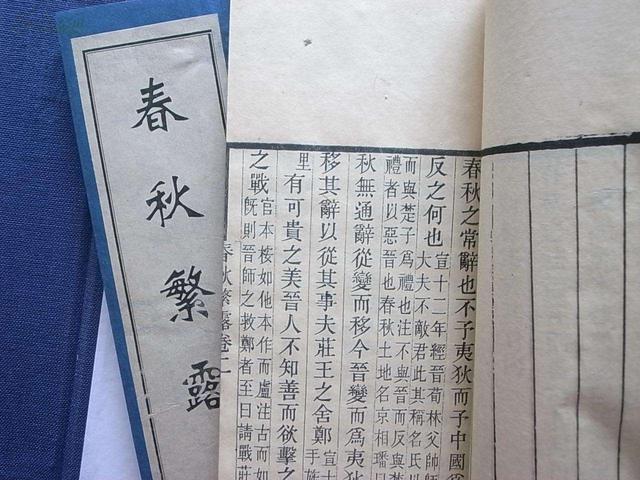 春秋繁露
春秋之常辭也不予夷狄而予中國爲
反之何也
宣十二年經晉荀林父帥師
大夫不敵君此其稱名氏以
而與楚子爲禮也注不與晉而反與楚
禮者以惡晉也春秋土地名京相璠曰
秋無通辭從變而移今晉變而爲夷狄
移其辭以從其事夫莊王之舍鄭
宣十
手
里
有可貴之美晉人不知善而欲擊之
之戰
官本按如他本作而盧注古而如
旣則晉師之救鄭者至曰請戰莊
春秋繁露卷二